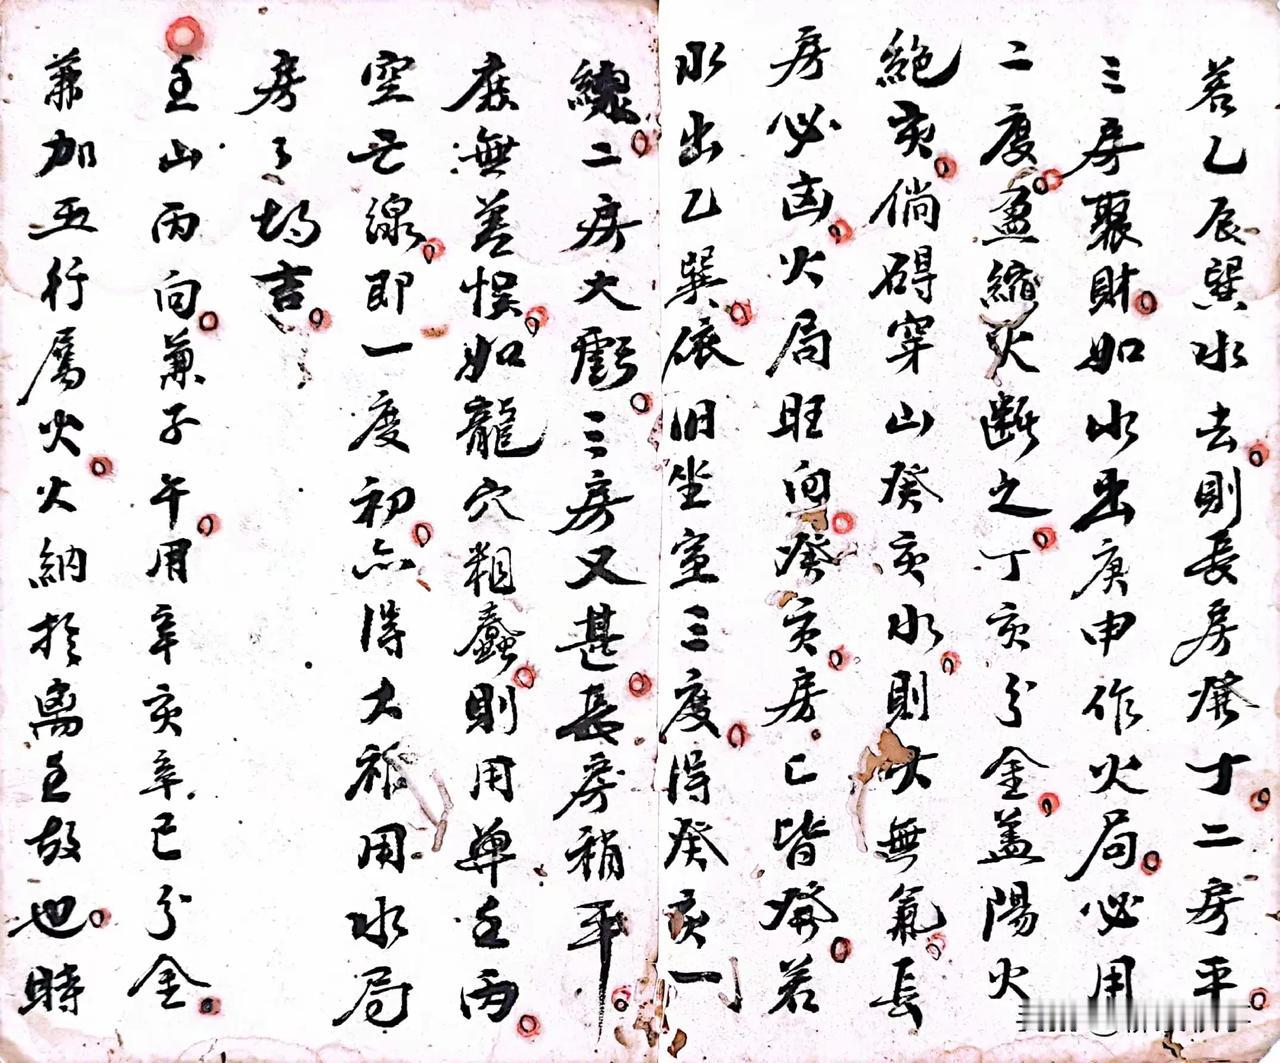 若乙辰巽水去則長房發丁二房平
三房聚財如水出庚申作火局必用
二度盈縮火断之丁亥分金盖陽火
絕亥倘碍穿山癸亥水則火無氣長
房必凶火局旺向癸亥房亡皆發若
水出乙巽依旧坐室三度得癸亥一
線二房大虧三房又甚長房稍平
庶無差悮如龍穴粗蠢則用單壬丙
空亡線即一度初亦得大福用水局
房了均吉
壬山丙向兼子午用辛亥辛巳分金
兼加五行屬火火納於离壬故也時